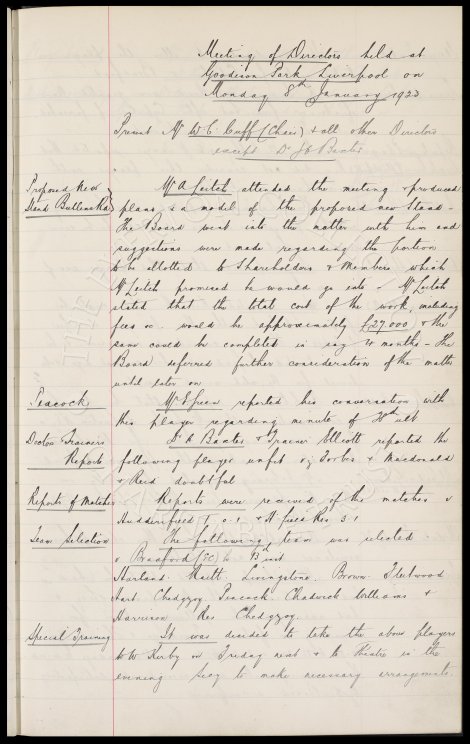 Meeting of Directors held at
Goodison Park Liverpool on
Monday 8th January 1923
Present Mr W C Cuff (Chair) & all other Directors
except Dr J C Baxter
Proposed New
Stand Bullens Rd
Mr A Leitch attended the meeting & produced
plans & a model of the proposed new Stand -
The Board went into the matter with him and
suggestions were made regarding the portion
to be allotted to Shareholders & Members which
Mr Leitch promised he would go into - Mr Leitch
stated that the total cost of the work, including
fees &c would be approximately £27.000 & the
same could be completed in say 4 months - The
Board deferred further consideration of the matter
until later on
Peacock
Mr E Green reported his conversation with
this player regarding minute of 30th ult
Doctors Trainers
Reports
Dr Baxter & Trainer Elliott reported the
following players unfit vz Forbes & Macdonald
& Reid doubtful
Reports of Matches
Reports were received of the matches v
Huddersfield T. 0.1 & Hfield Res. 3.1
Team Selection
The following team was selected
v Bradford (EC) h 13th inst
Harland. Raitt. Livingstone. Brown. Fleetwood
Hart. Chedgzoy. Peacock. Chadwick Williams &
Harrison Res Chedgzoy.
Special Training
It was decided to take the above players
to W Kirby on Friday next & to Theatre in the
evening Secy to make necessary arrangements.